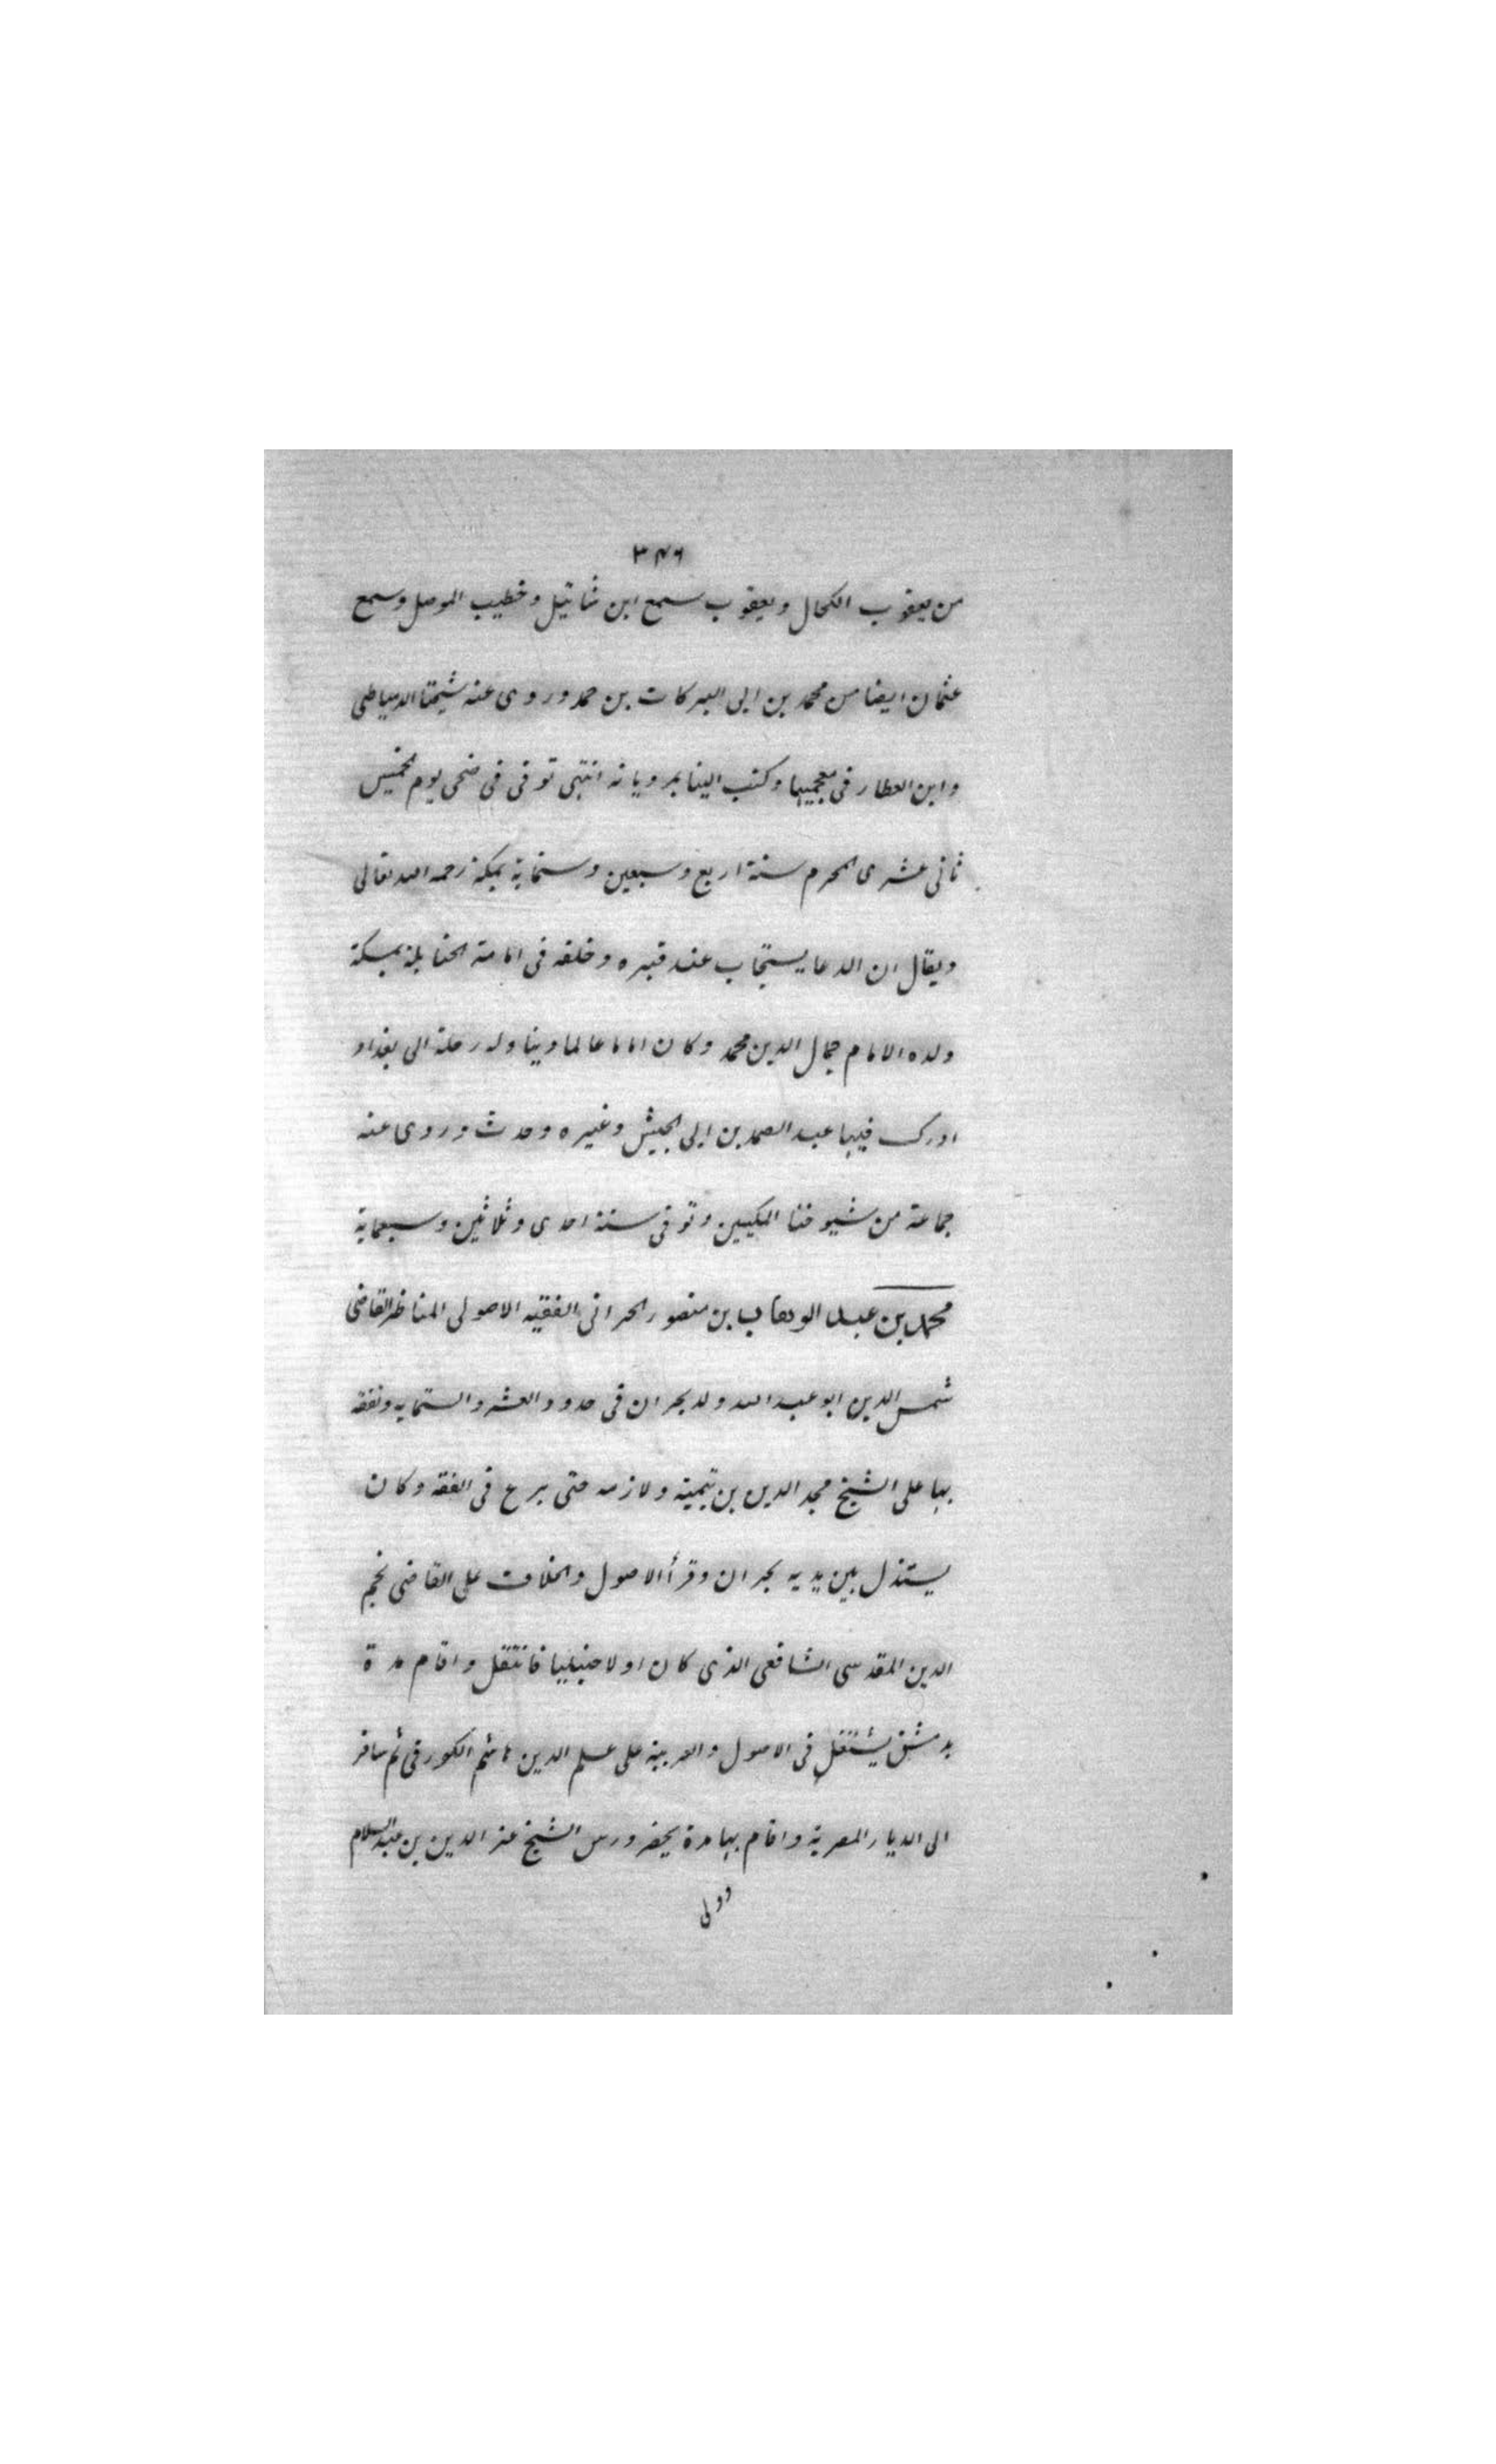 ٣٤٦
من يعقوب الكحال ويعقوب سمع ابن شاتيل وخطيب الموصل وسمع
عثمان ايضا من محمد بن ابى البركات بن حمد وروى عنه شيخنا الدمياطى
وابن العطار فى معجميهما وكتب الينا بمروياته انتهى توفى فى ضحى يوم الخميس
ثانى عشرى المحرم سنة اربع وسبعين وستماية بمكة رحمه الله تعالى
ويقال ان الدعا يستجاب عند قبره وخلفه فى امامة الحنابلة بمكة
ولده الامام جمال الدين محمد وكان اماما عالما دينا وله رحلة الى بغداد
ادرك فيها عبد الصمد بن ابى الجيش وغيره وحدث وروى عنه
جماعة من شيوخنا المكيين وتوفى سنة احدى وثلاثين وسبعماية
محمد بن عبد الوهاب بن منصور الحرانى الفقيه الاصولى المناظر القاضى
شمس الدين ابو عبد الله ولد بحران فى حدود العشر والستمايه وتفقه
بها على الشيخ مجد الدين بن تيمية ولازمه حتى برع فى الفقه وكان
يستدل بين يديه بحران وقرأ الاصول والخلاف على القاضى نجم
الدين المقدسى الشافعى الذى كان اولا حنبليا فانتقل واقام مدة
بدمشق يشتغل فى الاصول والعربية على علم الدين قاسم اللورقى ثم سافر
الى الديار المصرية واقام بها مدة يحضر درس الشيخ عز الدين بن عبد السلام
وولى